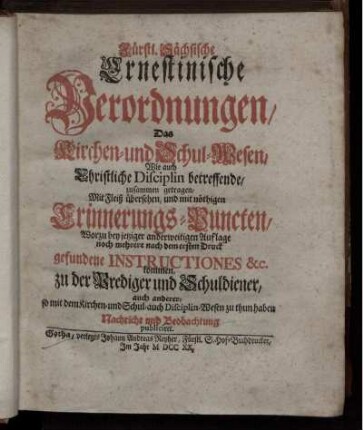 Fürstl. Sächsische
Ernestinische
Verordnungen/
Das
Kirchen- und Schul-Wesen/
Wie auch
Christliche Disciplin betreffende/
zusammen getragen/
Mit Fleiß übersehen, und mit nöthigen
Erinnerungs-Puncten/
Worzu bey jeziger anderweitigen Auflage
noch mehrere nach dem ersten Druck
gefundene INSTRUCTIONES &c.
kommen,
zu der Prediger und Schuldiener,
auch anderer,
so mit dem Kirchen- und Schul- auch Disciplin-Wesen zu thun haben
Nachricht und Beobachtung
publiciret.
Gotha, verlegts Johann Andreas Reyher, Fürstl. S. Hof-Buchdrucker,
Im Jahr M DCC XX.